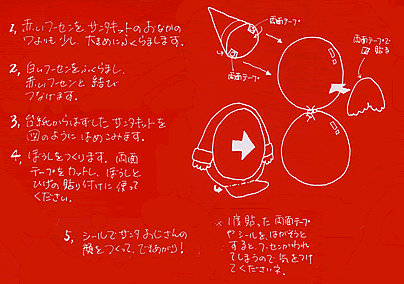 1, 赤いフーセンを、サンタキットのおなかの
ワよりも少し、大きめにふくらまします。
2, 白いフーセンをふくらまし、
赤いフーセンと結び
つなげます。
3, 台紙からはずしたサンタキットを
図のようにはめこみます。
4, ぼうしをつくります。両面
テープをカットし、ぼうしと
ひげの貼り付けに使って
ください。
5, シールでサンタおじさんの
顔をつくって、できあがり!
両面テープ
両面テープ
両面テープで
貼る
※1度貼った両面テープ
やシールを、はがそうと
すると、フーセンがわれ
てしまうので気をつけ
てくださいネ。